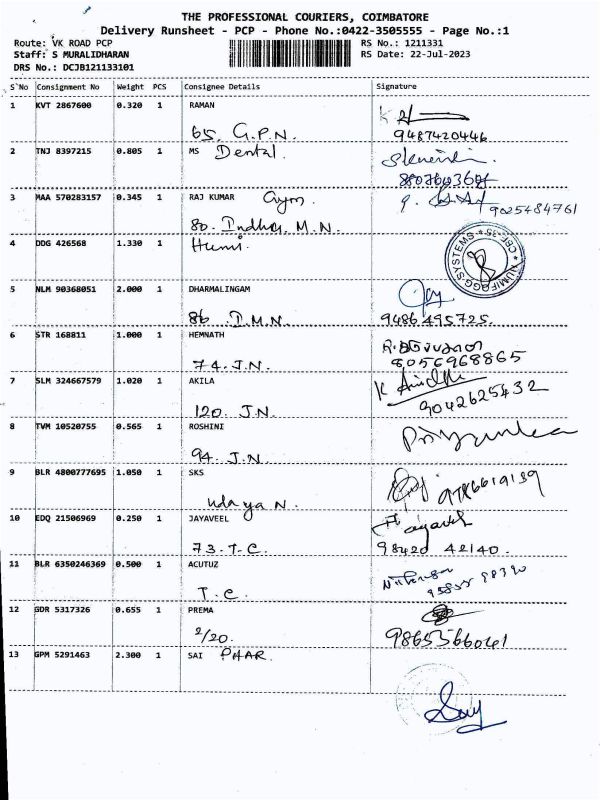 THE PROFESSIONAL COURIERS, COIMBATORE
Delivery Runsheet - PCP - Phone No.:0422-3505555 - Page No.:1
Route: VK ROAD PCP
Staff: S MURALIDHARAN
DRS No.: DCJB121133101
RS No.: 1211331
RS Date: 22-Jul-2023
S'No Consignment No Weight PCS Consignee Details Signature
1 KVT 2867600 0.320 1 RAMAN
65. G.P.N. 9487420446
2 TNJ 8397215 0.805 1 MS Dental.
3 MAA 570283157 0.345 1 RAJ KUMAR 9025484761
80. M.N.
4 DDG 426568 1.330 1 Humi
5 NLM 90368051 2.000 1 DHARMALINGAM
86 I.M.N. 9486495725.
6 STR 168811 1.000 1 HEMNATH
74. J.N. 8056968865
7 SLM 324667579 1.020 1 AKILA K
120. J.N. 9042625432
8 TVM 10520755 0.565 1 ROSHINI Priyanka
94. J.N.
9 BLR 4800777695 1.050 1 SKS
Udaya N.
10 EDQ 21506969 0.250 1 JAYAVEEL
73. T.C. 98420 42140.
11 BLR 6350246369 0.500 1 ACUTUZ
T.C.
12 GDR 5317326 0.655 1 PREMA
2/20. 9865566041
13 GPM 5291463 2.300 1 SAI PHAR.